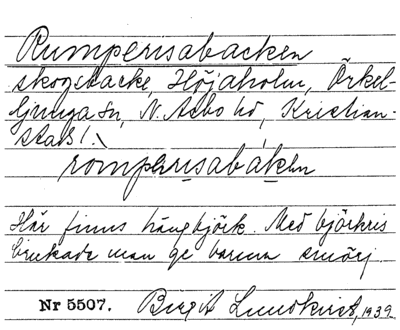 Rumperisabacken
skogsbacke, Höjaholm, Örkel-
ljunga sn, N. Asbo hd, Kristian-
stads l.
romperisabakken
Här finns hängbjörk. Med björkris
brukade man ge barna smörj.
Nr 5507. Birgit Lundkvist, 1939